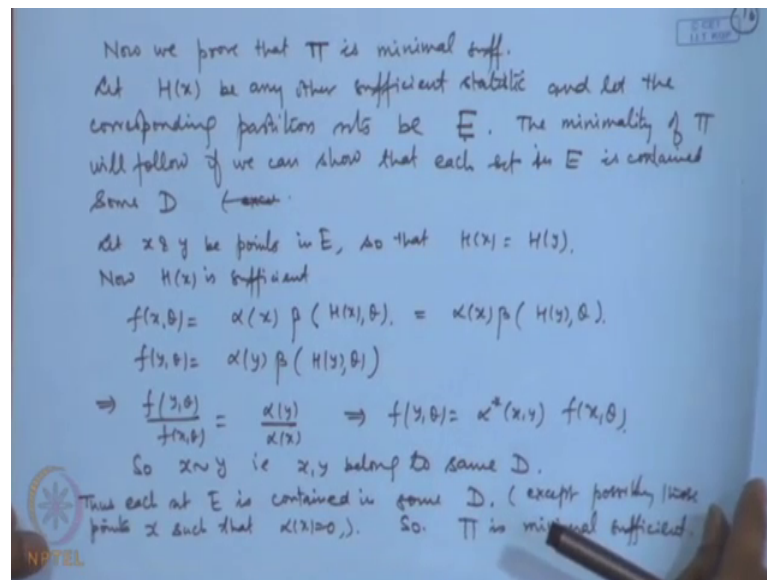 Now we prove that Π is minimal suff.
Let H(x) be any other sufficient statistic and let the
corresponding partition sets be E. The minimality of Π
will follow if we can show that each set in E is contained
Some D
Let x & y be points in E, so that H(x) = H(y).
Now H(x) is sufficient
f(x,θ) = α(x) β(H(x),θ). = α(x) β(H(y),θ).
f(y,θ) = α(y) β(H(y),θ)
⇒ f(y,θ)/f(x,θ) = α(y)/α(x) ⇒ f(y,θ) = α*(x,y) f(x,θ).
So x~y ie x,y belong to same D.
Thus each set E is contained in some D. (except possibly those
points x such that α(x)=0,). So. Π is minimal sufficient.
NPTEL